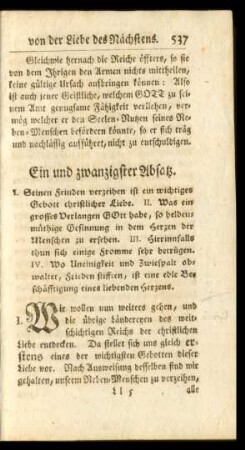 von der Liebe des Nächstens. 537
Gleichwie hernach die Reiche öffters, so sie
von dem Ihrigen den Armen nichts mittheilen,
keine gültige Ursach aufbringen können: Also
ist auch jener Geistliche, welchem GOTT zu sei-
nem Amt genugsame Fähigkeit verliehen, ver-
mög welcher er den Seelen-Nutzen seines Ne-
ben-Menschen befördern könnte, so er sich träg
und nachläßig aufführet, nicht zu entschuldigen.
Ein und zwanzigster Absatz.
I. Seinen Feinden verzeihen ist ein wichtiges
Gebott christlicher Liebe. II. Was ein
grosses Verlangen GOtt habe, so heldens
müthige Gesinnung in dem Herzen der
Menschen zu ersehen. III. Hierinnfalls
thun sich einige Fromme sehr betrügen.
IV. Wo Uneinigkeit und Zwiespalt ob-
waltet, Frieden stifften, ist eine edle Be-
schäfftigung eines liebenden Herzens.
I. Wir wollen nun weiters gehen, und
die übrige Ländereyen des weit-
schichtigen Reichs der christlichen
Liebe entdecken. Da stellet sich uns gleich er-
stens eines der wichtigsten Gebotten dieser
Liebe vor. Nach Ausweisung desselben sind wir
gehalten, unserm Neben-Menschen zu verzeihen,
Ll 5 alle